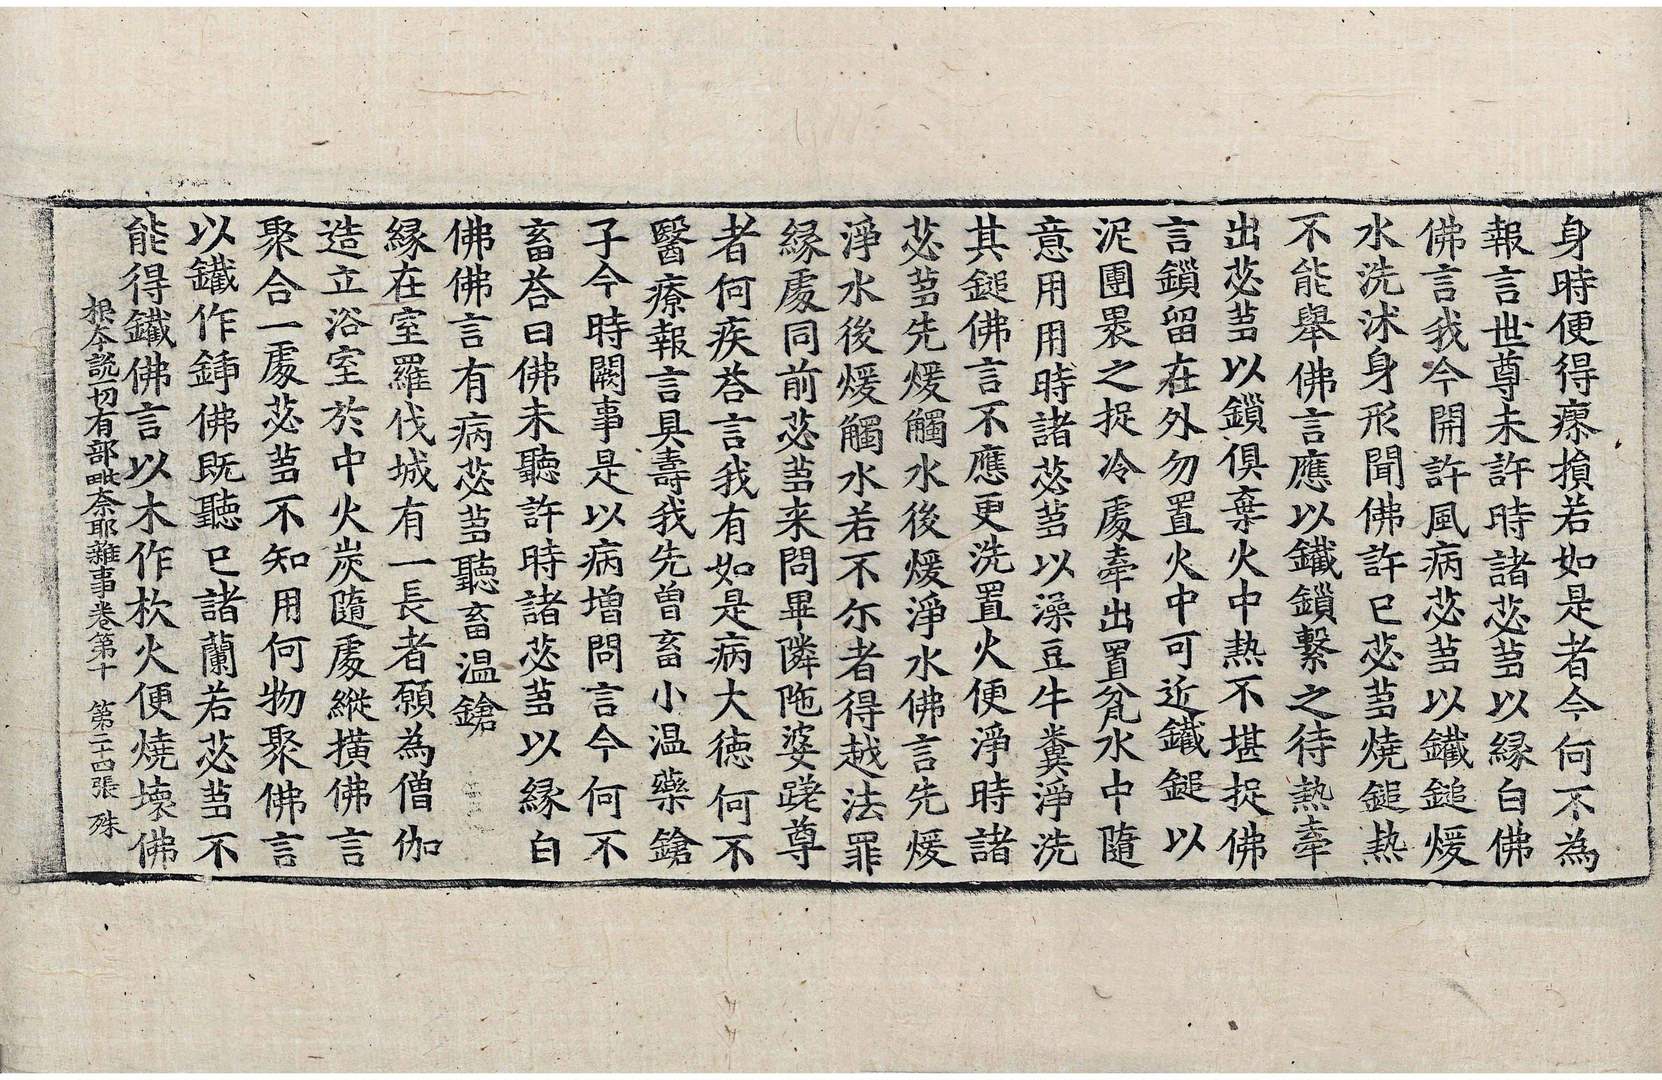 身時便得瘳損若如是者今何不為
報言世尊未許時諸苾芻以緣白佛
佛言我今開許風病苾芻以鐵鎚煖
水洗沐身形聞佛許已苾芻燒鎚熱
不能舉佛言應以鐵鎖繫之待熱牽
出苾芻以鎖俱棄火中熱不堪捉佛
言鎖留在外勿置火中可近鐵鎚以
泥團裹之捉冷處牽出置瓮水中隨
意用用時諸苾芻以澡豆牛糞淨洗
其鎚佛言不應更洗置火便淨時諸
苾芻先煖觸水後煖淨水佛言先煖
淨水後煖觸水若不尒者得越法罪
緣處同前苾芻来問畢隣陁婆蹉尊
者何疾荅言我有如是病大德何不
醫療報言具壽我先曾畜小温藥鎗
子今時闕事是以病增問言今何不
畜荅曰佛未聽許時諸苾芻以緣白
佛佛言有病苾芻聽畜温鎗
緣在室羅伐城有一長者願為僧伽
造立浴室於中火炭隨處縱撗佛言
聚合一處苾芻不知用何物聚佛言
以鐵作鍤佛既聽已諸蘭若苾芻不
能得鐵佛言以木作杴火便燒壞佛
根本說一切有部毗奈耶雜事卷第十　第二十四張　殊